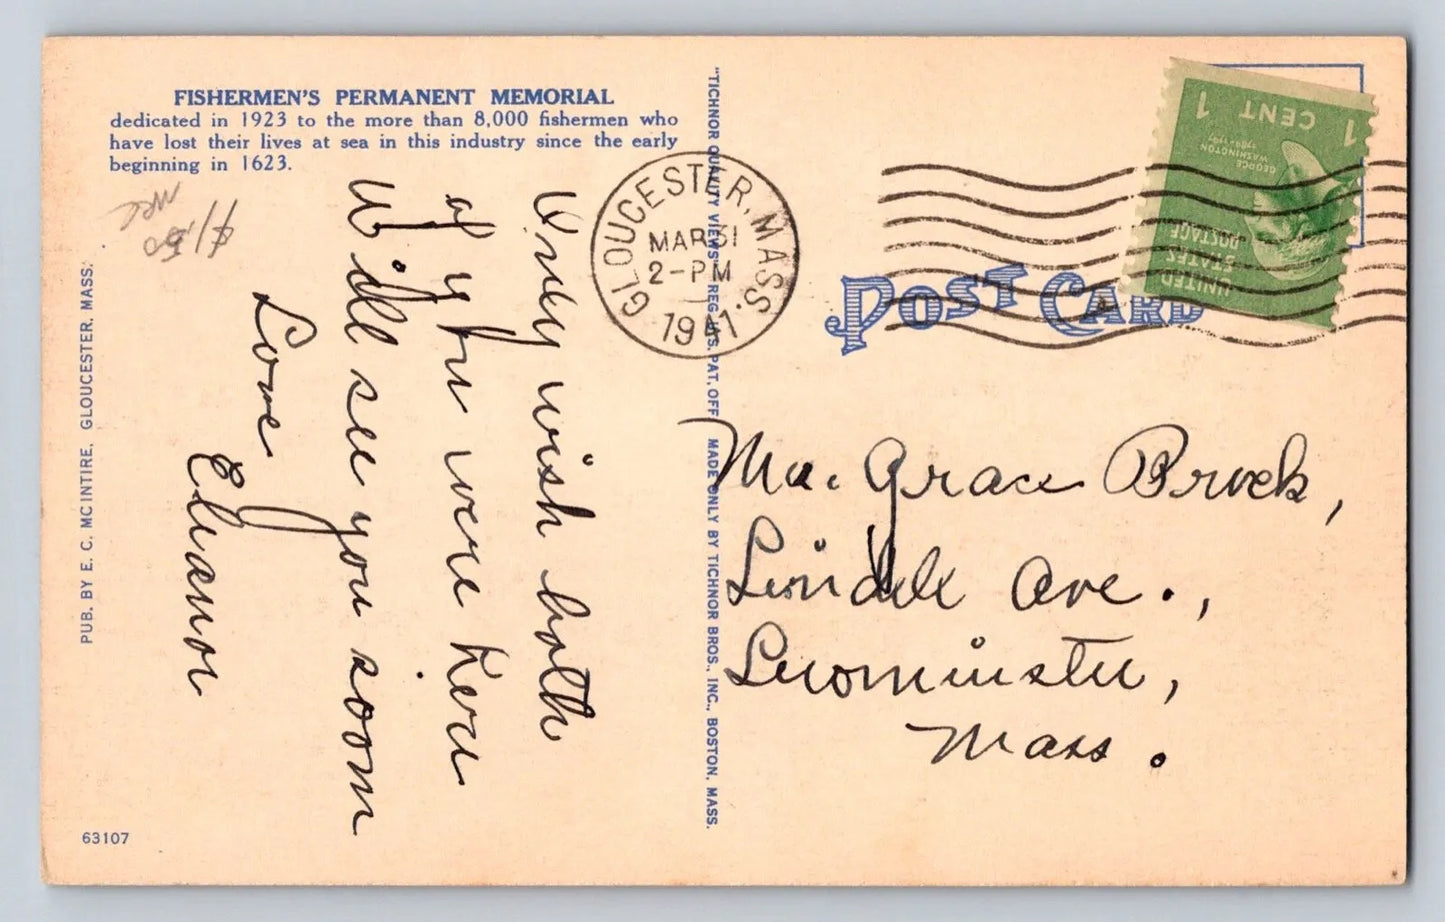 FISHERMEN'S PERMANENT MEMORIAL
dedicated in 1923 to the more than 8,000 fishermen who
have lost their lives at sea in this industry since the early
beginning in 1623.
$1.50
Only wish both
of you were here
Will see you soon
Love
Eleanor
PUB. BY E. C. MCINTIRE, GLOUCESTER, MASS.
63107
"TICHNOR QUALITY VIEWS" REG. U.S. PAT. OFF. MADE ONLY BY TICHNOR BROS., INC., BOSTON, MASS.
GLOUCESTER, MASS.
MAR 31
2-PM
1941
POST CARD
1 CENT 1
GEORGE
WASHINGTON
1789-1797
UNITED
STATES
POSTAGE
Grace Brock,
Lindell Ave.,
Leominster,
Mass.